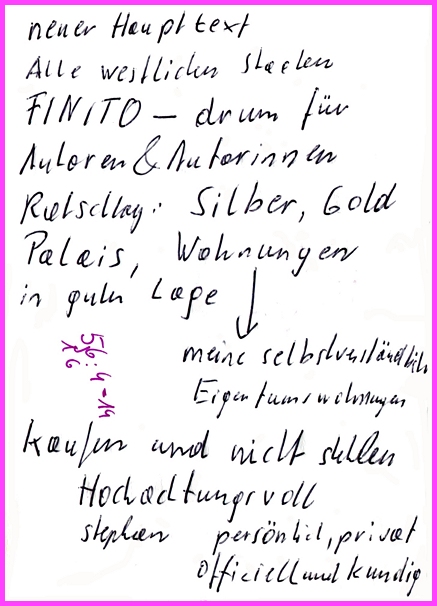 neuer Haupttext
Alle westlichen Staaten
FINITO – drum für
Autoren & Autorinnen
Ratschlag: Silber, Gold
Palais, Wohnungen
in guter Lage ↓
meine selbstverständlich
Eigentumswohnungen
56:4=14
16
kaufen und nicht stehlen
Hochachtungsvoll
stephan persönlich, privat
officiell und kundig